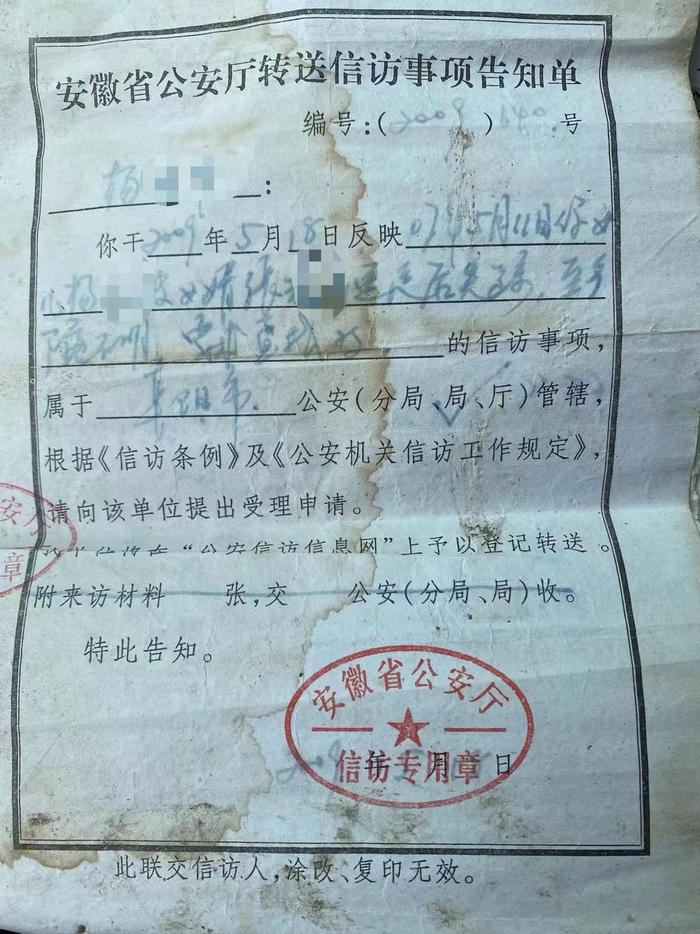 安徽省公安厅转送信访事项告知单
编号:(2009)640号
杨:
你于2009年5月18日反映07年5月11日你女
儿杨 女婿张 后失踪,至今
的信访事项,
属于 阜阳市 公安(分局、局、厅)管辖,
根据《信访条例》及《公安机关信访工作规定》,
请向该单位提出受理申请。
“公安信访信息网”上予以登记转送。
附来访材料 张,交 公安(分局、局)收。
特此告知。
安徽省公安厅
信访专用章
2009年5月18日
此联交信访人,涂改、复印无效。
安厅
章